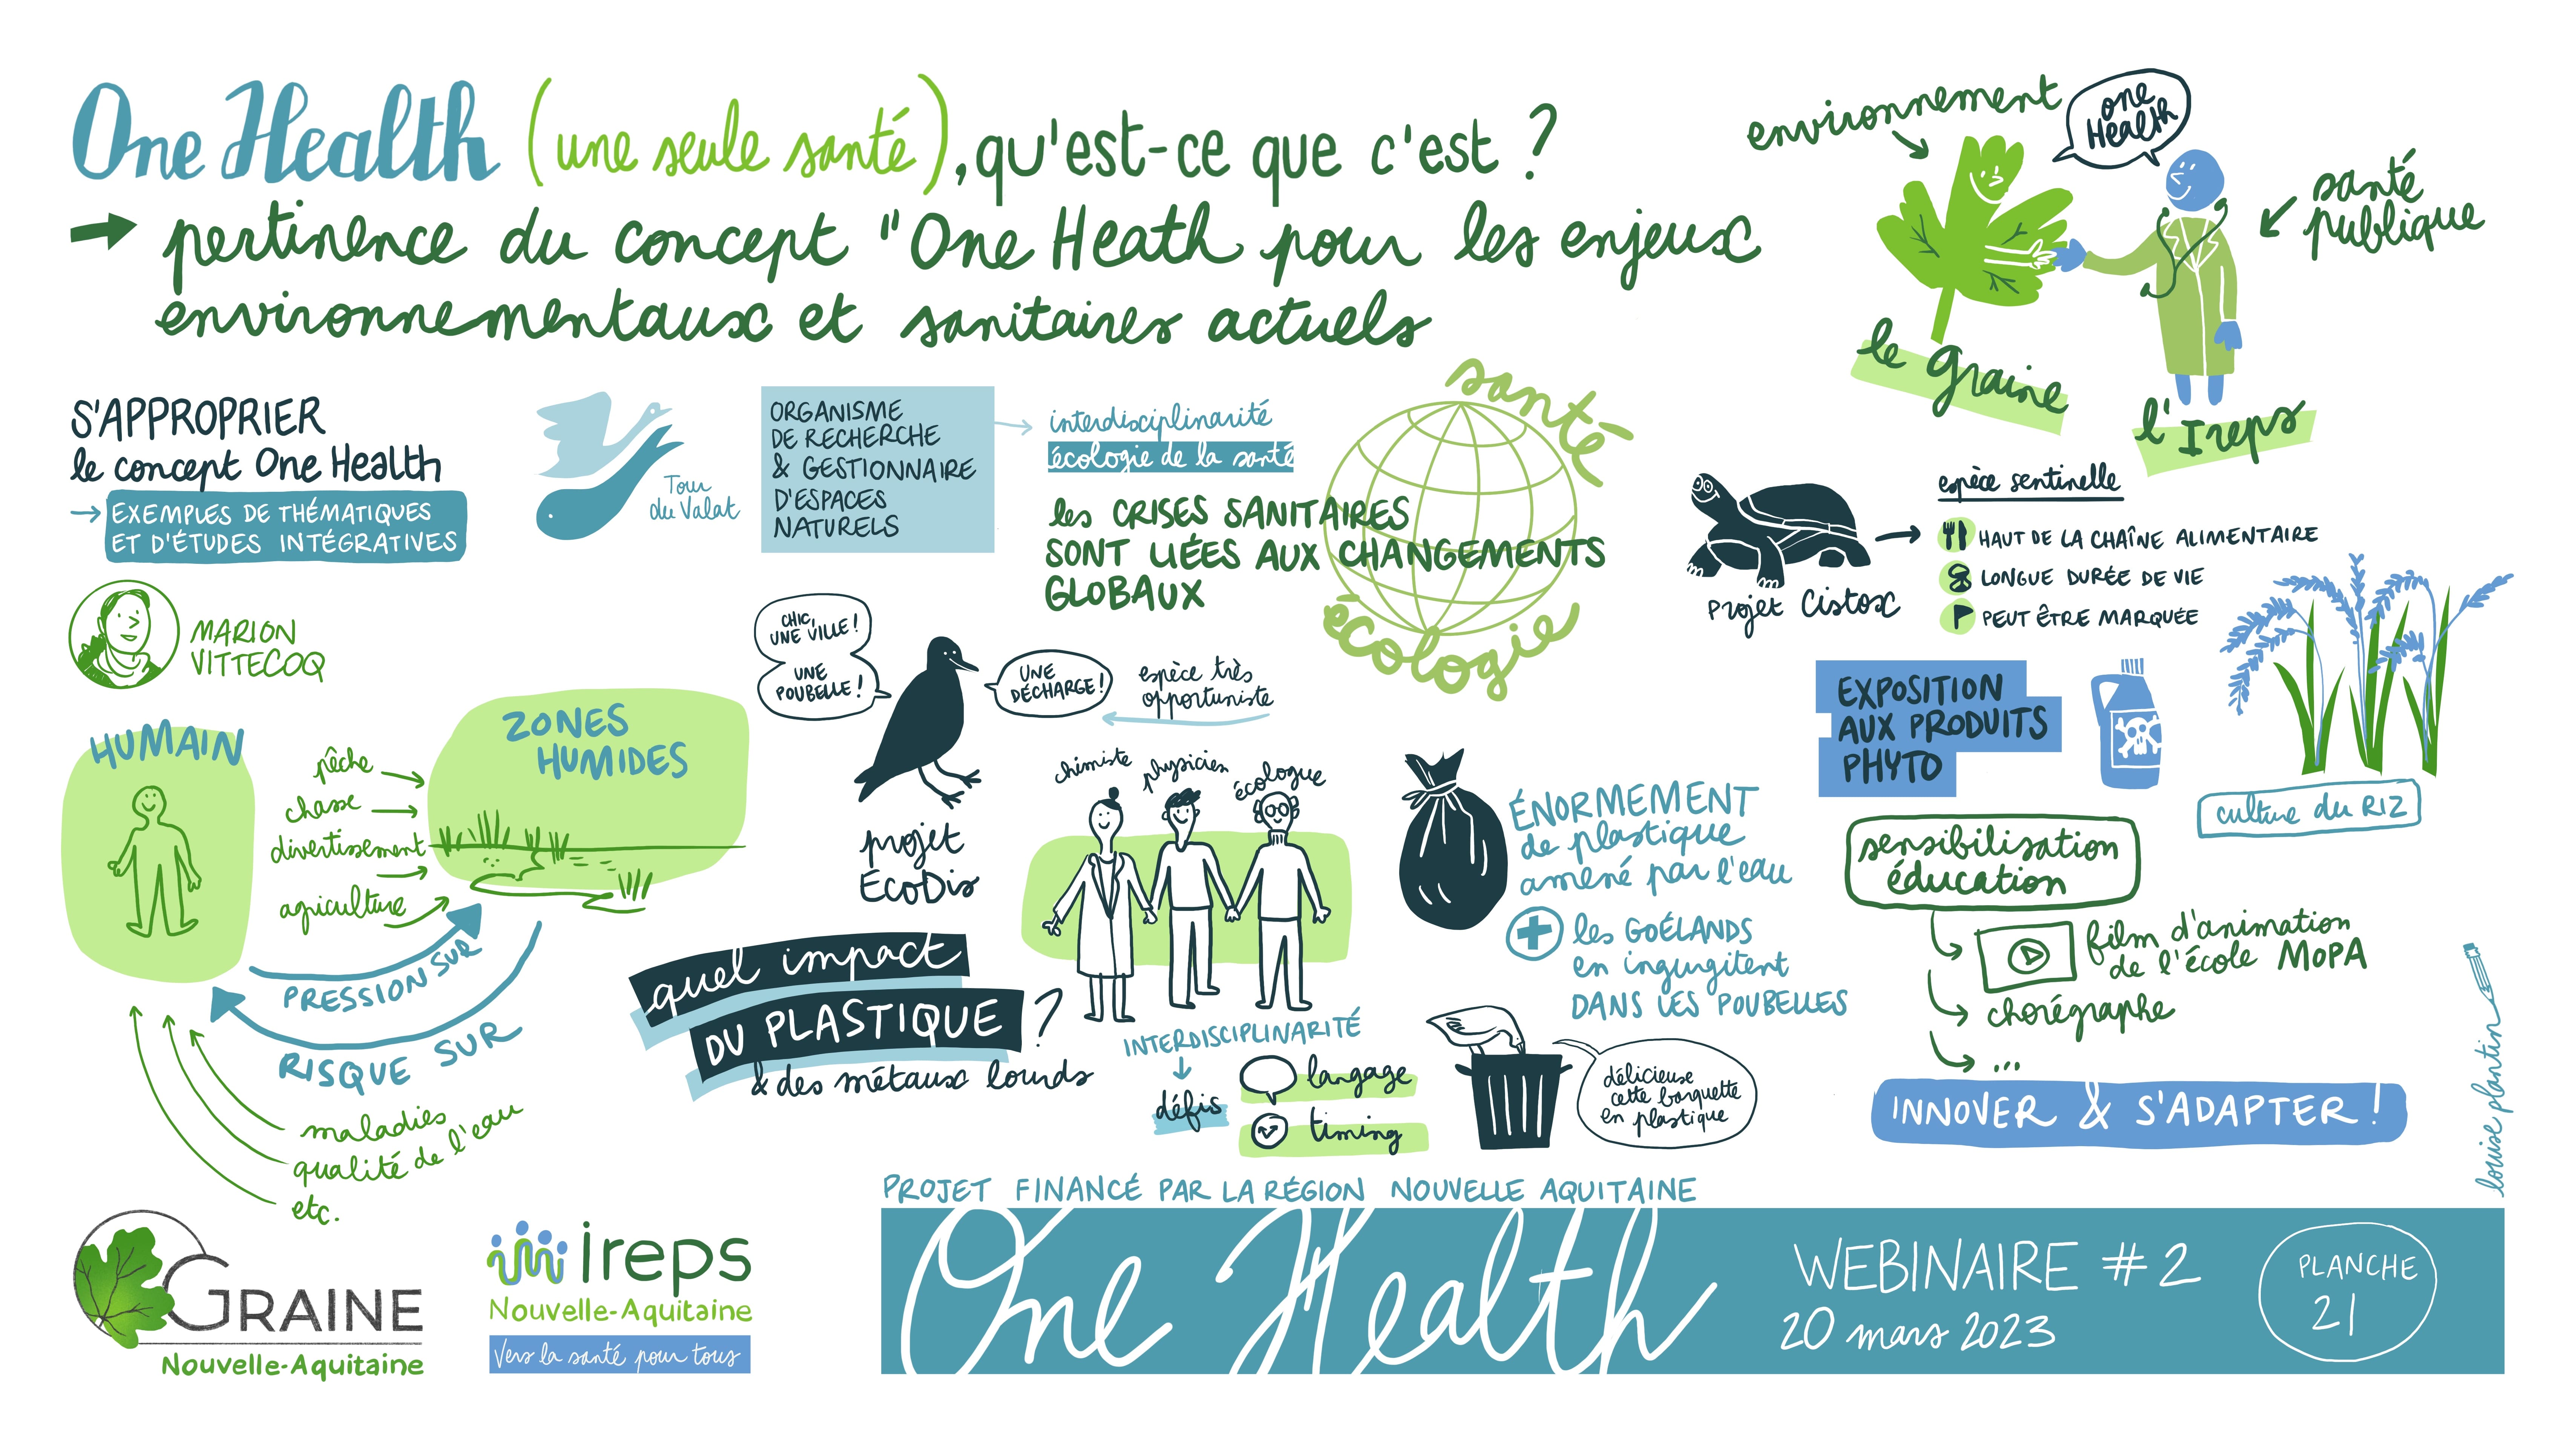 One Health (une seule santé), qu'est-ce que c'est ?
→ pertinence du concept "One Heath pour les enjeux
environnementaux et sanitaires actuels
environnement
one
Health
santé
publique
le Graine
l'Ireps
S'APPROPRIER
le concept One Health
→ EXEMPLES DE THÉMATIQUES
ET D'ÉTUDES INTÉGRATIVES
MARION
VITTECOQ
Tour
du Valat
ORGANISME
DE RECHERCHE
& GESTIONNAIRE
D'ESPACES
NATURELS
interdisciplinarité
écologie de la santé
les CRISES SANITAIRES
SONT LIÉES AUX CHANGEMENTS
GLOBAUX
santé
écologie
projet Cistox
espèce sentinelle
HAUT DE LA CHAÎNE ALIMENTAIRE
LONGUE DURÉE DE VIE
PEUT ÊTRE MARQUÉE
HUMAIN
pêche
chasse
divertissement
agriculture
ZONES
HUMIDES
PRESSION SUR
RISQUE SUR
maladies
qualité de l'eau
etc.
CHIC,
UNE VILLE !
UNE
POUBELLE !
UNE
DÉCHARGE !
espèce très
opportuniste
projet
EcoDis
quel impact
DU PLASTIQUE ?
& des métaux lourds
chimiste
physicien
écologue
INTERDISCIPLINARITÉ
défis
langage
timing
ÉNORMEMENT
de plastique
amené par l'eau
+ les GOÉLANDS
en ingurgitent
DANS LES POUBELLES
délicieuse
cette barquette
en plastique
EXPOSITION
AUX PRODUITS
PHYTO
culture du RIZ
sensibilisation
éducation
film d'animation
de l'école MoPA
chorégraphe
...
INNOVER & S'ADAPTER !
louise plantin
GRAINE
Nouvelle-Aquitaine
ireps
Nouvelle-Aquitaine
Vers la santé pour tous
PROJET FINANCÉ PAR LA RÉGION NOUVELLE AQUITAINE
One Health
WEBINAIRE #2
20 mars 2023
PLANCHE
21